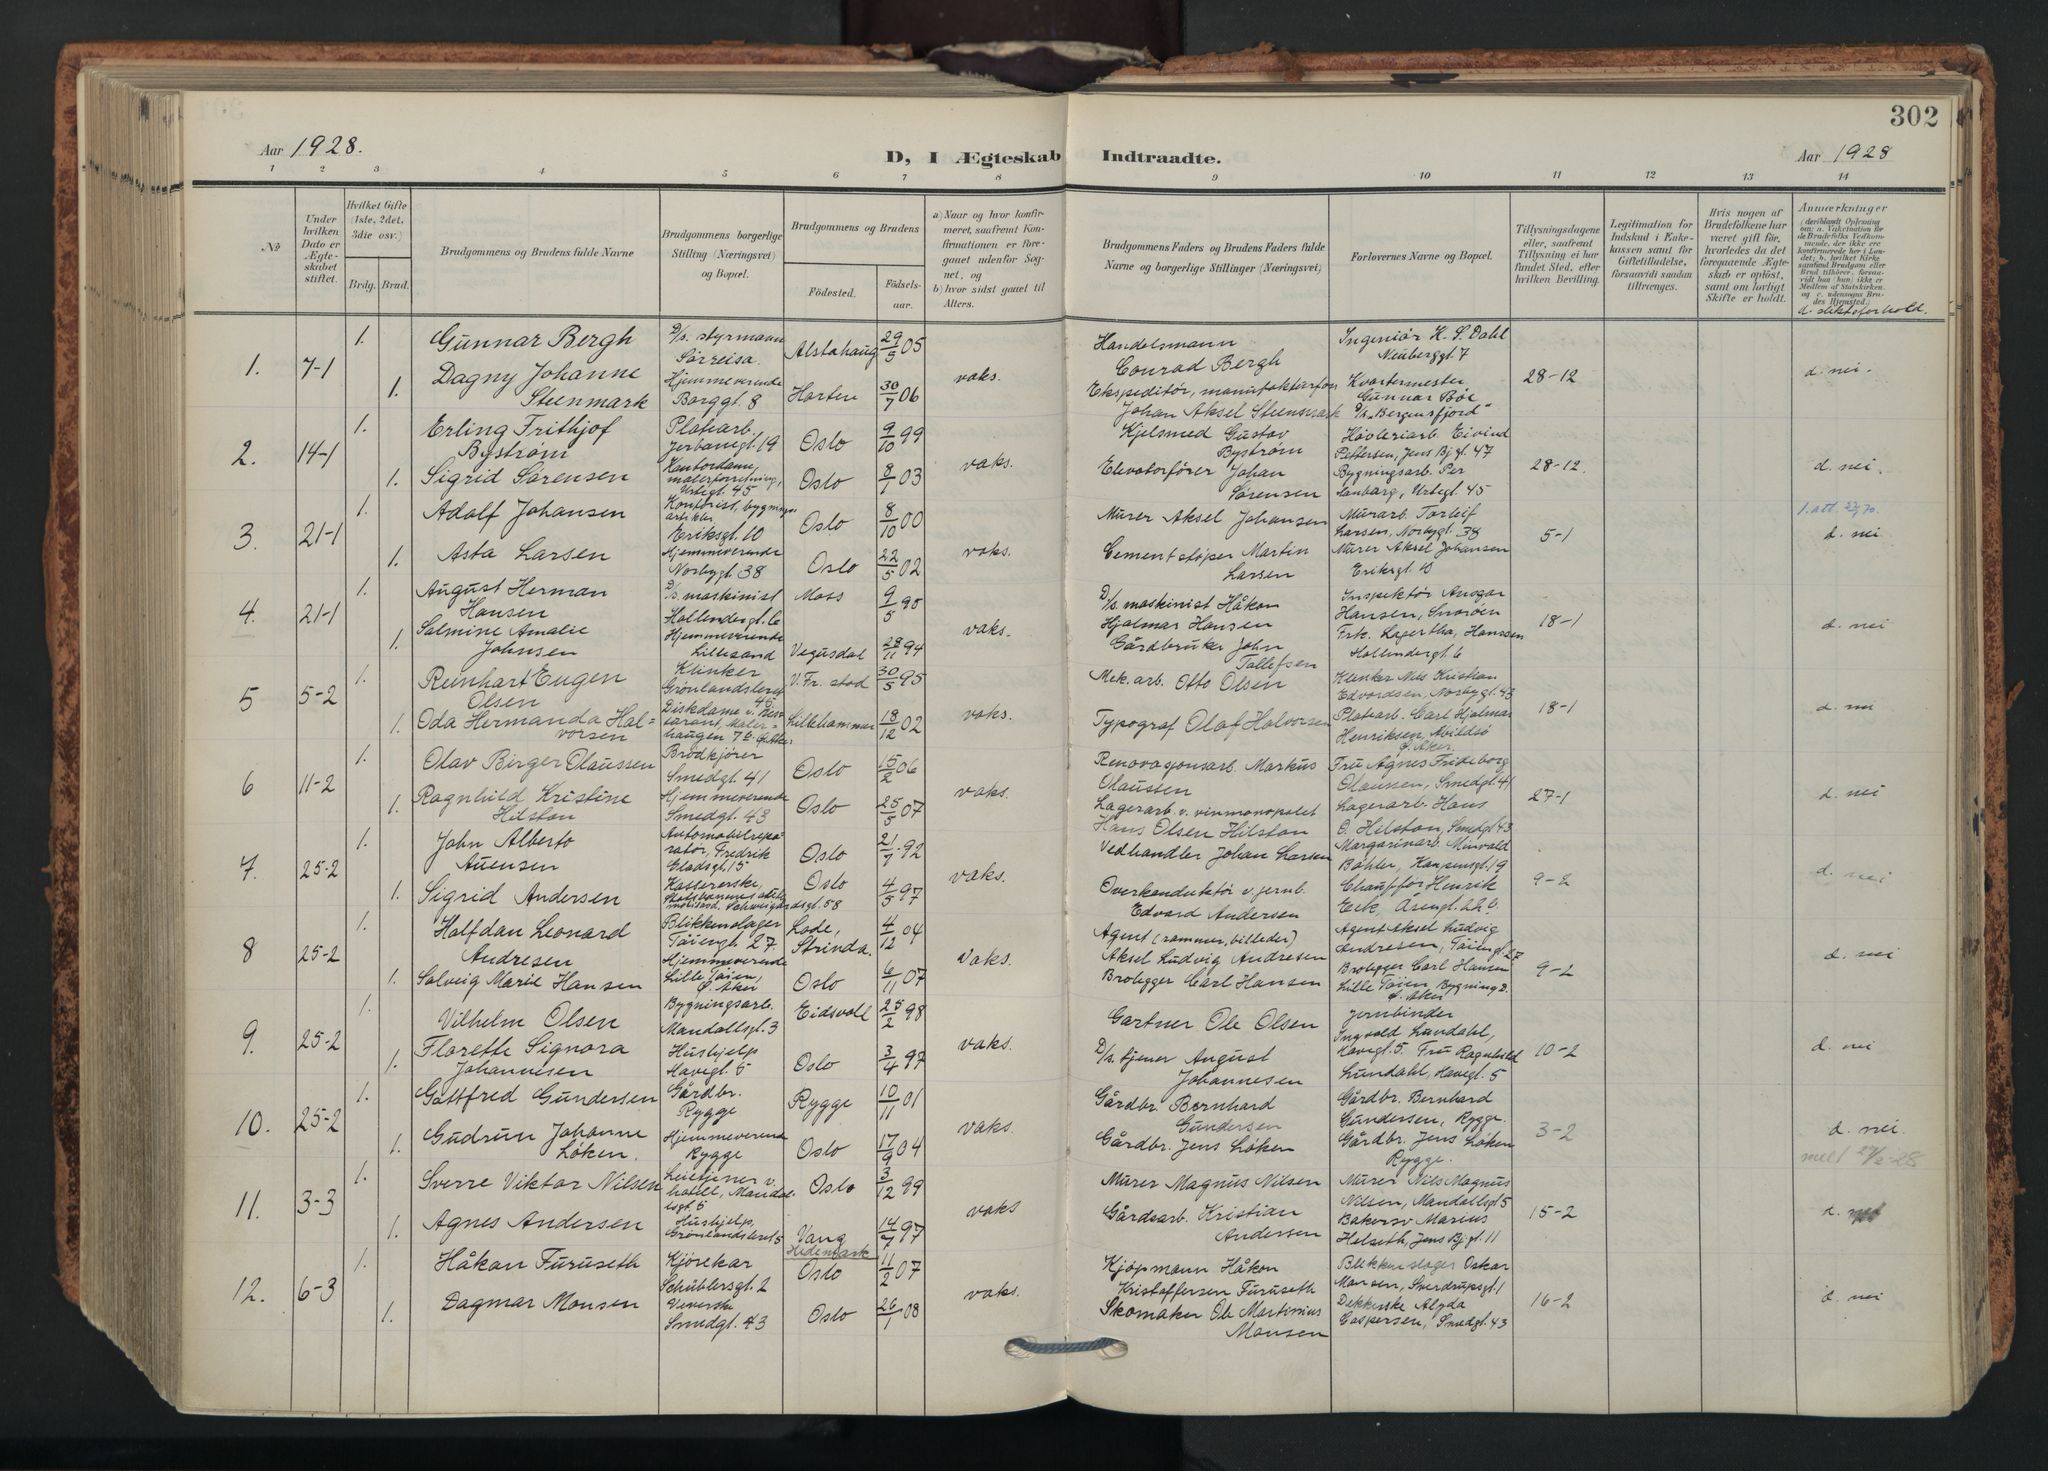 302
Aar 1928.
D, I Ægteskab Indtraadte.
Aar 1928
1 2 3 4 5 6 7 8 9 10 11 12 13 14
No
Under hvilken Dato er Ægteskabet stiftet.
Hvilket Gifte (1ste, 2det, 3die osv.)
Brdg. Brud.
Brudgommens og Brudens fulde Navne
Brudgommens borgerlige Stilling (Næringsvei) og Bopæl.
Brudgommens og Brudens
Fødested.
Fødselsaar.
a) Naar og hvor konfirmeret, saafremt Konfirmationen er foregaaet udenfor Sognet, og
b) hvor sidst gaaet til Alters.
Brudgommens Faders og Brudens Faders fulde Navne og borgerlige Stillinger (Næringsvei)
Forlovernes Navne og Bopæl.
Tillysningsdagene eller, saafremt Tillysning ei har fundet Sted, efter hvilken Bevilling.
Legitimation for Indskud i Enkekassen samt for Giftetilladelse, forsaavidt saadan tiltrænges.
Hvis nogen af Brudefolkene har været gift før, hvorledes da det foregaaende Ægteskab er opløst, samt om lovligt Skifte er holdt.
Anmærkninger
d. slektsforhold.
1. 7-1
1. Gunnar Bergh D/s. styrmann Sørreisa Alstahaug 29/5 05
Handelsmann Conrad Bergh
Ingeniør K. S. Dahl Neuberggt 7
1. Dagny Johanne Steenmark Hjemmeverende Borggt. 8 Horten 30/7 06
vaks.
Ekspeditør, manufakturforr. Johan Aksel Steenmark
Kvartermester Gunnar Bøe D/s "Bergensfjord"
28-12 d. nei.
2. 14-1
1. Erling Frithjof Bystrøm Platearb. Jerbanegt. 19 Oslo 9/10 99
Kjelsmed Gustav Bystrøm
Høvleriarb. Eivind Pettersen, Jens Bj. gt. 47
1. Sigrid Sørensen Kontordame, malerforretning, Urtegt. 45 Oslo 8/1 03
vaks.
Elevatorfører Johan Sørensen
Bygningsarb. Per Urtegt. 45
28-12. d. nei.
3. 21-1
1. Adolf Johansen Kontorist, bygnings artikler Eriksgt. 10 Oslo 8/10 00
Murer Aksel Johansen
Murarb. Torleif Larsen, Norbygt. 38
1. Asta Larsen Hjemmeverende Norbygt. 38 Oslo 22/5 02
vaks.
Cementstøper Martin Larsen
Murer Aksel Johansen Eriksgt. 10
5-1 d. nei
4. 21-1
1. August Herman Hansen D/s. maskinist Hollendergt. 6 Moss 9/5 90
D/s. maskinist Håkon Hjalmar Hansen
Inspektør Ansgar Hansen, Snarøen
1. Salmine Amalie Johnsen Hjemmeverende Lillesand Vegusdal 28/11 94
vaks.
Gårdbruker John Tollefsen
Frk. Lagertha Hanssen Hollendergt. 6
18-1 d. nei
5 5-2
1. Reinhart Eugen Olsen Klinker Grønlandsleret 40 V. Fr. stad 30/5 95
Mek. arb. Otto Olsen
Klinker Nils Kristian Edvardsen, Norbygt. 43
1. Oda Hermanda Halvorsen Diskdame v. Lillehammer 18/12 02
vaks.
Typograf Olaf Halvorsen
Platearb. Carl Hjalmar Henriksen, Abildsø Ø. Aker
18-1 d. nei
6 11-2
1. Olav Birger Olaussen Brødkjører Smedgt. 41 Oslo 15/2 06
Renovasjonsarb. Markus Olaussen
Fru Agnes Frideborg Olaussen, Smedgt. 41
1. Ragnhild Kristine Hilston Hjemmeverende Smedgt. 43 Oslo 25/5 07
vaks.
Lagerarb. v. vinmonopolet Hans Olsen Hilston
Lagerarb. Hans O. Hilston, Smedgt. 43
27-1 d. nei
7. 25-2
1. John Alberto Auensen Automobilreparatør, Fredrik Gladsgt. 15 Oslo 21/7 92
Vedhandler Johan Larsen
Margarinarb. Minvald Bøhler, Hansensgt. 9
1. Sigrid Andersen Kassererske, Schweigårdsgt. 58 Oslo 4/5 97
vaks.
Overkonduktør v. jernb. Edvard Andersen
Chauffør Henrik Eek, Åsengt. 22 b
9-2 d. nei
8 25-2
1. Halfdan Leonard Andresen Blikkenslager Tøiengt. 27. Lade, Strinda. 4/12 04
Agent (rammer, billeder) Aksel Ludvig Andresen
Agent Aksel Ludvig Andresen, Tøiengt. 27
1. Solveig Marie Hansen Hjemmeverende Lille Tøien, Ø. Aker Oslo 6/11 07
vaks.
Brolegger Carl Hansen
Brolegger Carl Hansen Lille Tøien Bygning 2. Ø. Aker
9-2 d. nei
9. 25-2
1. Vilhelm Olsen Bygningsarb. Mandallsgt. 3 Eidsvoll 25/2 98
Gartner Ole Olsen
Jernbinder Ingvald Lundahl, Havegt. 5.
1. Florette Signora Johannesen Hushjelp Havegt. 5 Oslo 3/4 97
vaks.
D/s. tjener August Johannesen
Fru Ragnhild Lundahl, Havegt. 5
10-2 d. nei
10. 25-2
1. Gottfred Gundersen Gårdbr. Rygge Rygge 10/11 01
Gårdbr. Bernhard Gundersen
Gårdbr. Bernhard Gundersen, Rygge.
1. Gudrun Johanne Løken. Hjemmeverende Rygge Oslo 17/9 04
vaks.
Gårdbr. Jens Løken
Gårdbr. Jens Løken Rygge.
3-2 d. nei.
melt 27/2-28
11. 3-3
1. Sverre Viktor Nilsen hotell, Mandalsgt 5 Oslo 3/12 99
Murer Magnus Nilsen
Murer Nils Magnus Nilsen, Mandallsgt 5
1. Agnes Andersen Hushjelp, Grønlandsleret 5 Vang Hedemark 14/7 97
vaks
Gårdsarb. Kristian Andersen
Bakersv. Marius Helseth, Jens Bj. gt. 11
15-2 d. nei
12. 6-3
1. Håkon Furuseth Kjørekar Schüblersgt. 2 Oslo 11/2 07
Kjøpmann Håkon Kristoffersen Furuseth
Blikkenslager Oskar Monsen, Sverdrupsgt. 1
1. Dagmar Monsen Veverske Smedgt. 43 Oslo 26/1 08
vaks.
Skomaker Ole Martinius Monsen
Dekkerske Alyda Caspersen, Smedgt. 43
16-2 d. nei